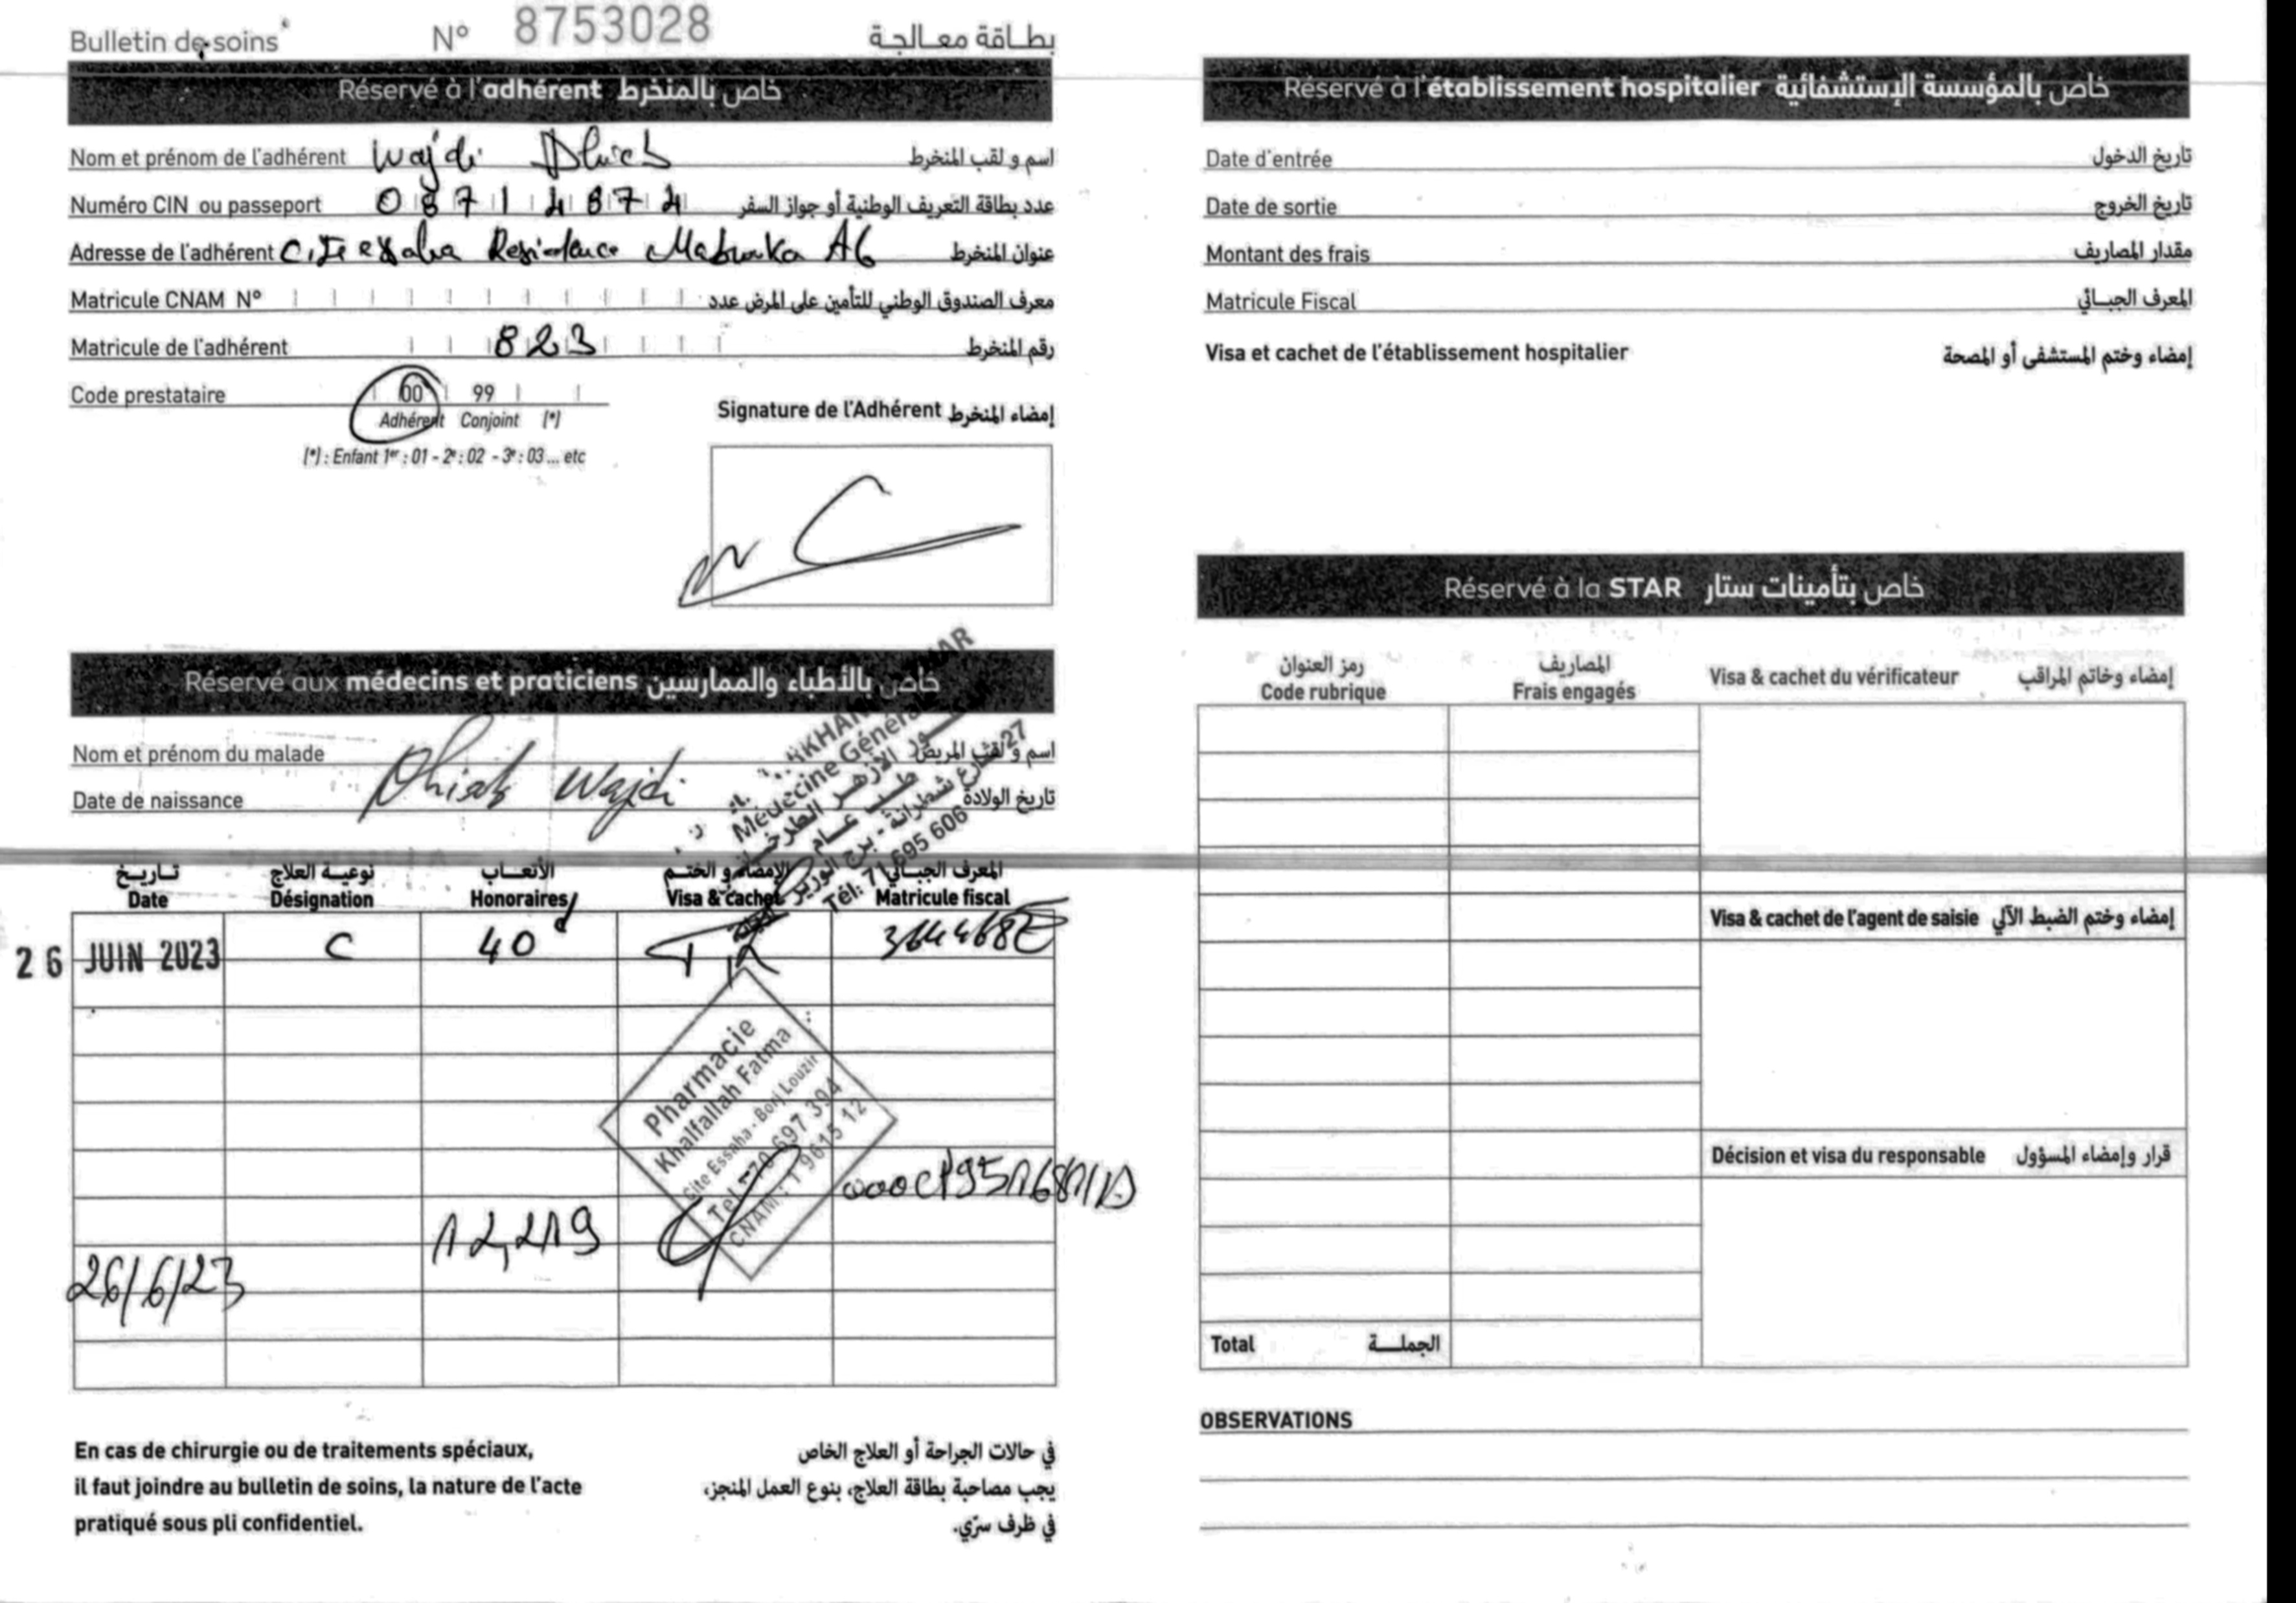 Bulletin de soins N° 8753028 بطاقة معالجة
Réservé à l'adhérent خاص بالمنخرط
Nom et prénom de l'adhérent Wajdi اسم و لقب المنخرط
Numéro CIN ou passeport 08714874 عدد بطاقة التعريف الوطنية أو جواز السفر
Adresse de l'adhérent Cite essaha Residence Mabrouka A6 عنوان المنخرط
Matricule CNAM N° معرف الصندوق الوطني للتأمين على المرض عدد
Matricule de l'adhérent 823 رقم المنخرط
Code prestataire 00 99
Adhérent Conjoint (*)
(*) : Enfant 1er : 01 - 2e : 02 - 3e : 03 ... etc
Signature de l'Adhérent إمضاء المنخرط
Réservé aux médecins et praticiens خاص بالأطباء والممارسين
Nom et prénom du malade Wajdi اسم و لقب المريض
Date de naissance تاريخ الولادة
Médecine Générale
طب عام
27 شارع شطرانة - برج الوزير
Tél: 71 695 606
تاريخ نوعية العلاج الأتعاب الإمضاء و الختم المعرف الجبائي
Date Désignation Honoraires Visa & cachet Matricule fiscal
26 JUIN 2023 C 40d
Pharmacie
Khalfallah Fatma
Cite Essaha - Borj Louzir
Tel : 70 697 394
CNAM : 1 9615 12
12,219
26/6/23
En cas de chirurgie ou de traitements spéciaux,
il faut joindre au bulletin de soins, la nature de l'acte
pratiqué sous pli confidentiel.
في حالات الجراحة أو العلاج الخاص
يجب مصاحبة بطاقة العلاج، بنوع العمل المنجز،
في ظرف سرّي.
Réservé à l'établissement hospitalier خاص بالمؤسسة الإستشفائية
Date d'entrée تاريخ الدخول
Date de sortie تاريخ الخروج
Montant des frais مقدار المصاريف
Matricule Fiscal المعرف الجبائي
Visa et cachet de l'établissement hospitalier إمضاء وختم المستشفى أو المصحة
Réservé à la STAR خاص بتأمينات ستار
رمز العنوان المصاريف
Code rubrique Frais engagés Visa & cachet du vérificateur إمضاء وخاتم المراقب
Visa & cachet de l'agent de saisie إمضاء وختم الضبط الآلي
Décision et visa du responsable قرار وإمضاء المسؤول
Total الجملة
OBSERVATIONS